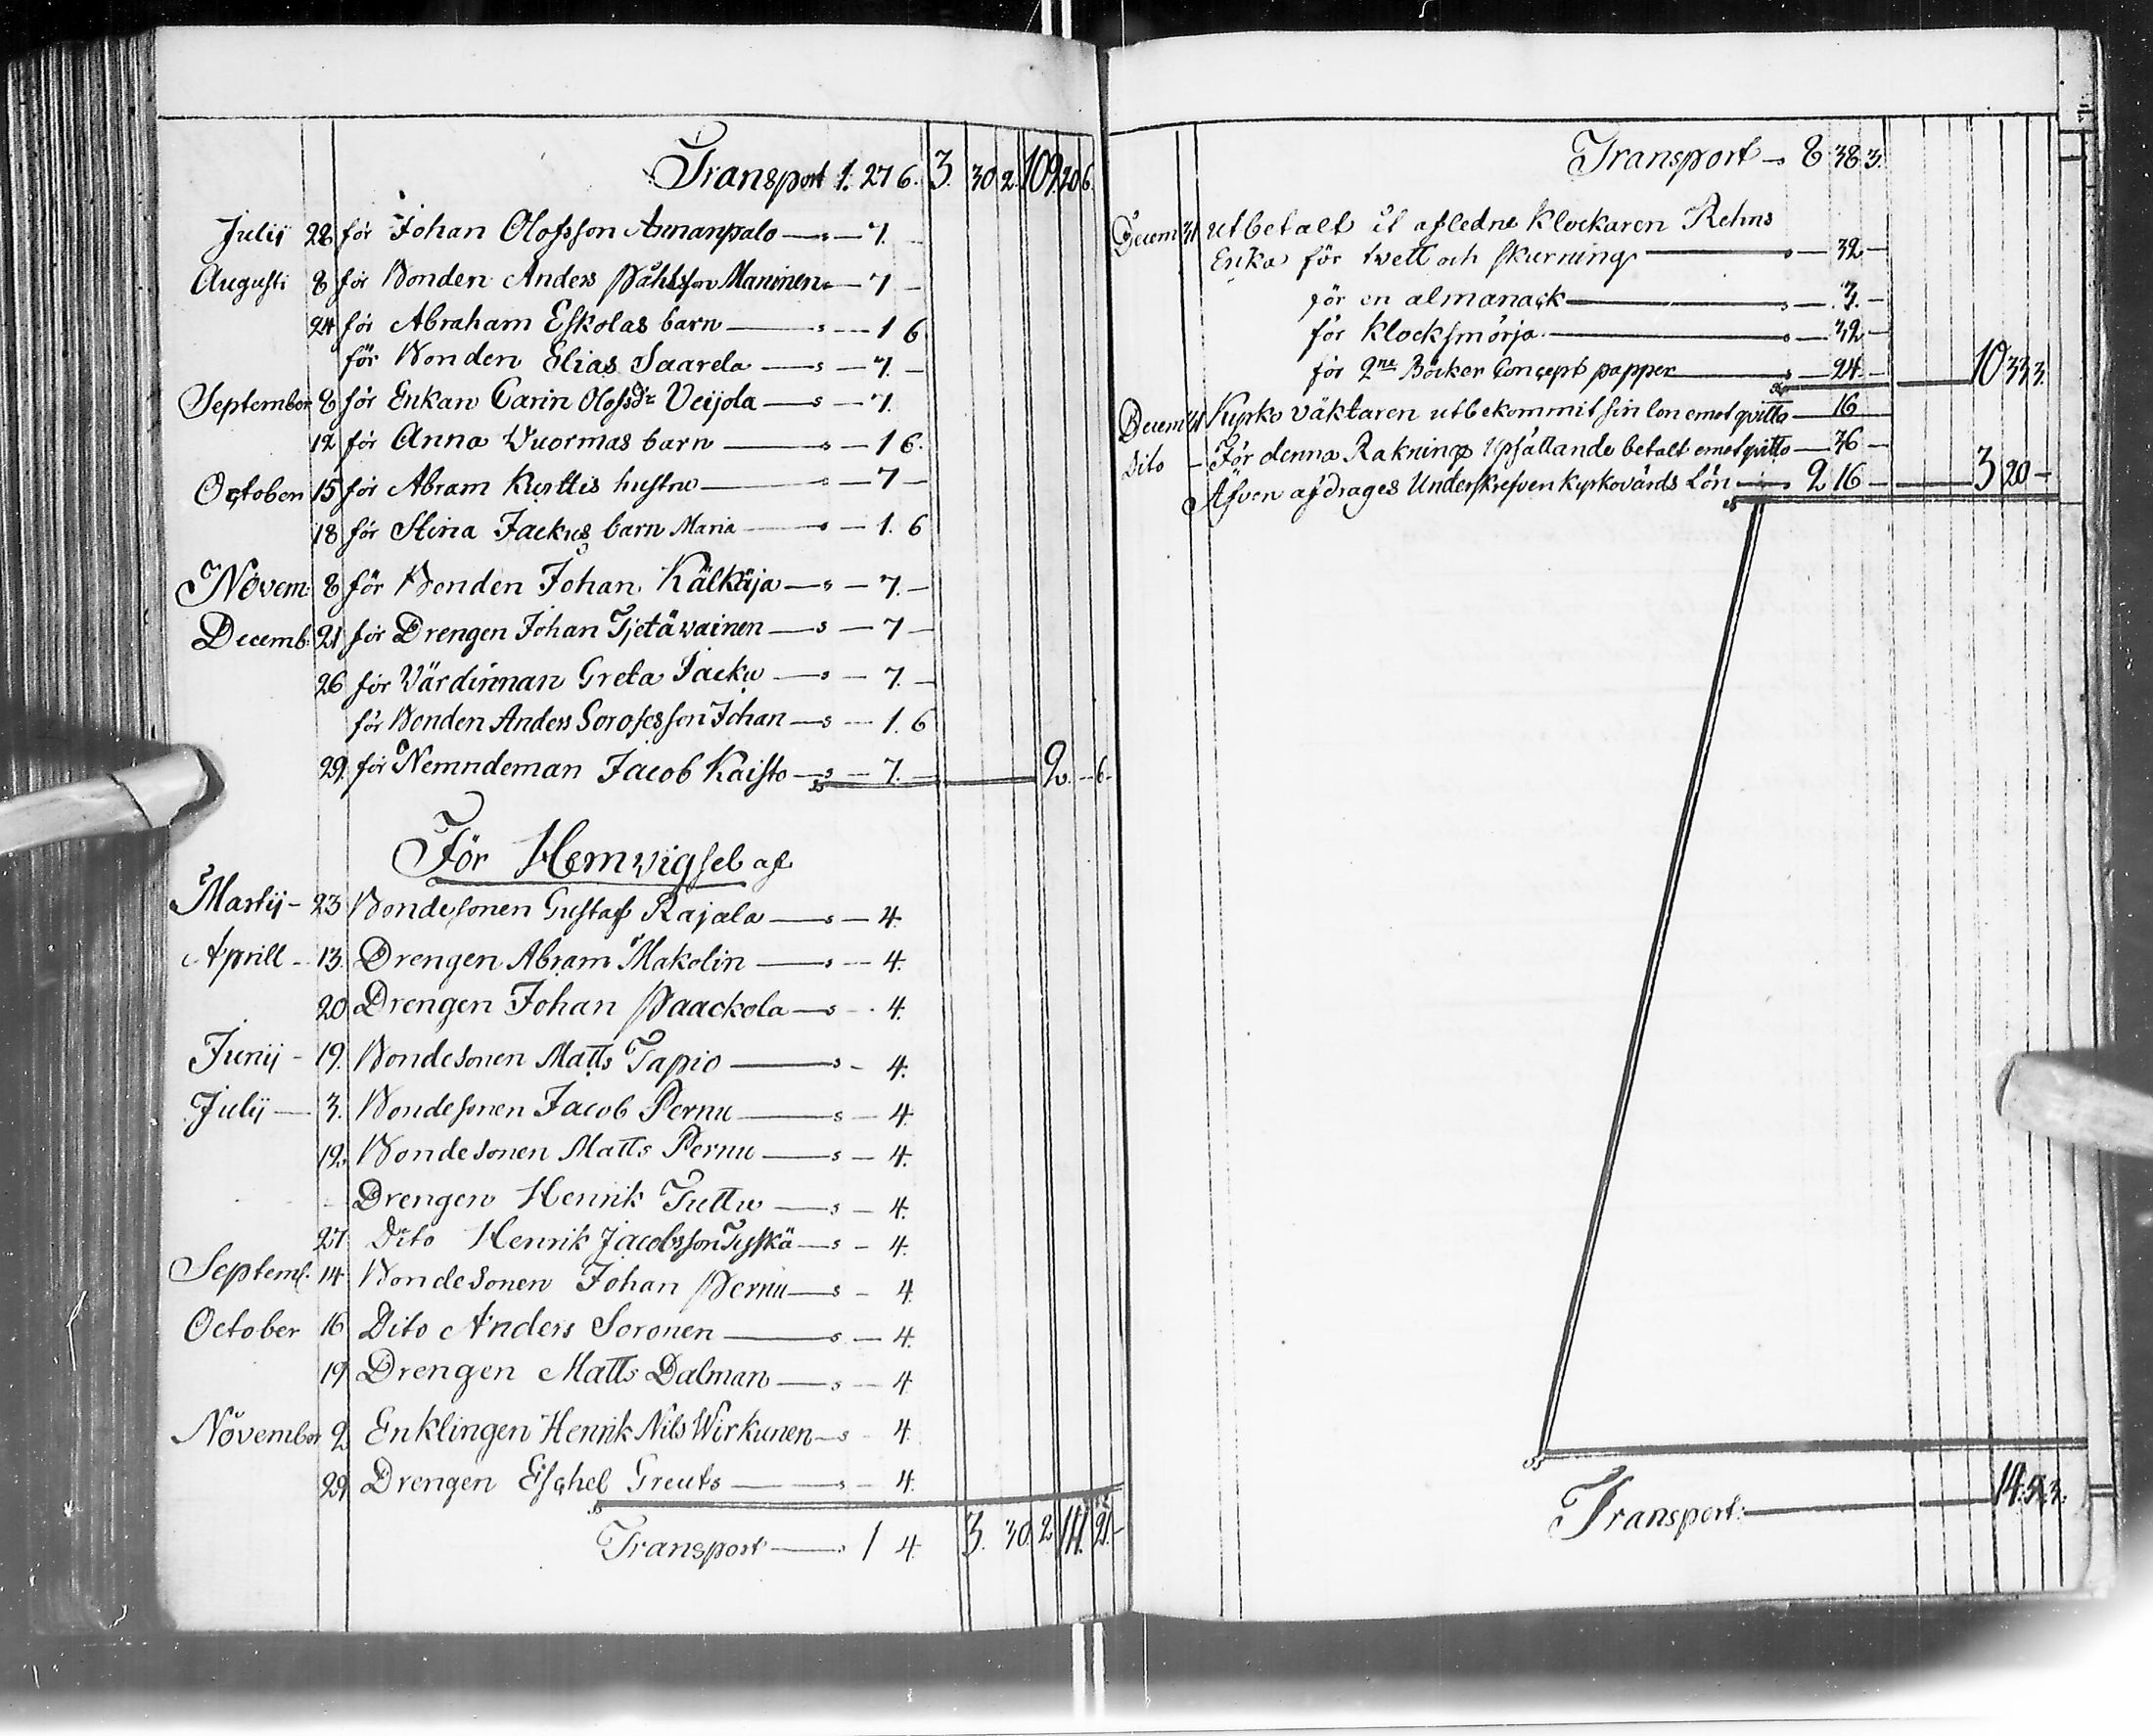 Transport 1. 27 6. 3. 30 2. 109. 20 6.
Julij 28 för Johan Olofsson Annanpalo — s — 7. —
Augusti 8 för Bonden Anders Påhlsson Maninen s — 7 —
24 för Abraham Eskolas barn — s — 1 6
för Bonden Elias Saarela — s — 7. —
September 8 för Enkan Carin Olofsdr Veijola — s — 7.
12 för Anna Vuormas barn — s — 1 6.
October 15 för Abram Kurttis hustru — s — 7 —
18 för Stina Jackus barn Maria — s — 1. 6
Novem: 8 för Bonden Johan Kälkäja — s — 7. —
Decemb: 21 för Drengen Johan Tjetäwainen — s — 7 —
26 för Värdinnan Greta Jacku — s — 7. —
för Bonden Anders Johan — s — 1. 6
29. för Nemndeman Jacob Kaisto — s — 7. — 2. — 6.
För Hemwigsel af
Martij — 23 Bondesonen Gustaf Rajala — s — 4.
Aprill — 13. Drengen Abram Makolin — s — 4.
20 Drengen Johan Paackola — s — 4.
Junij — 19. Bondesonen Matts Tapio — s — 4.
Julij — 3. Bondesonen Jacob Pernu — s — 4.
12. Bondesonen Matts Pernu — s — 4.
— Drengen Henrik Tuttu — s — 4.
27 Dito Henrik Jacobsson — s — 4.
Septemb. 14 Bondesonen Johan Pernu — s — 4
October 16 Dito Anders Soronen — s — 4.
19 Drengen Matts Dalman — s — 4
November 2 Enklingen Henrik Nils Wirkunen — s — 4.
29 Drengen Eschel Greuts — s — 4.
Transport — 1 4. 3. 30. 2 111. 21. —
Transport — s 8 38 3.
Decem 31 utbetalt åt afledne Klockaren Rehns
Enka för tvett och skurning — s — 32 —
för en almanack — s — 3. —
för Klocksmörja — s — 32 —
för 2ne Böcker Concept papper — s — 24. — 10 33 3.
Decem 31 Kyrko väktaren utbekommit sin lön emot qvitto — 16
Dito — För denna Räknings Upsättande betalt emot qvitto — 36 —
Äfven afdrages Underskrefven Kyrkovärds Lön — 2 16 — 3 20 —
Transport: — 14. 5. 3.